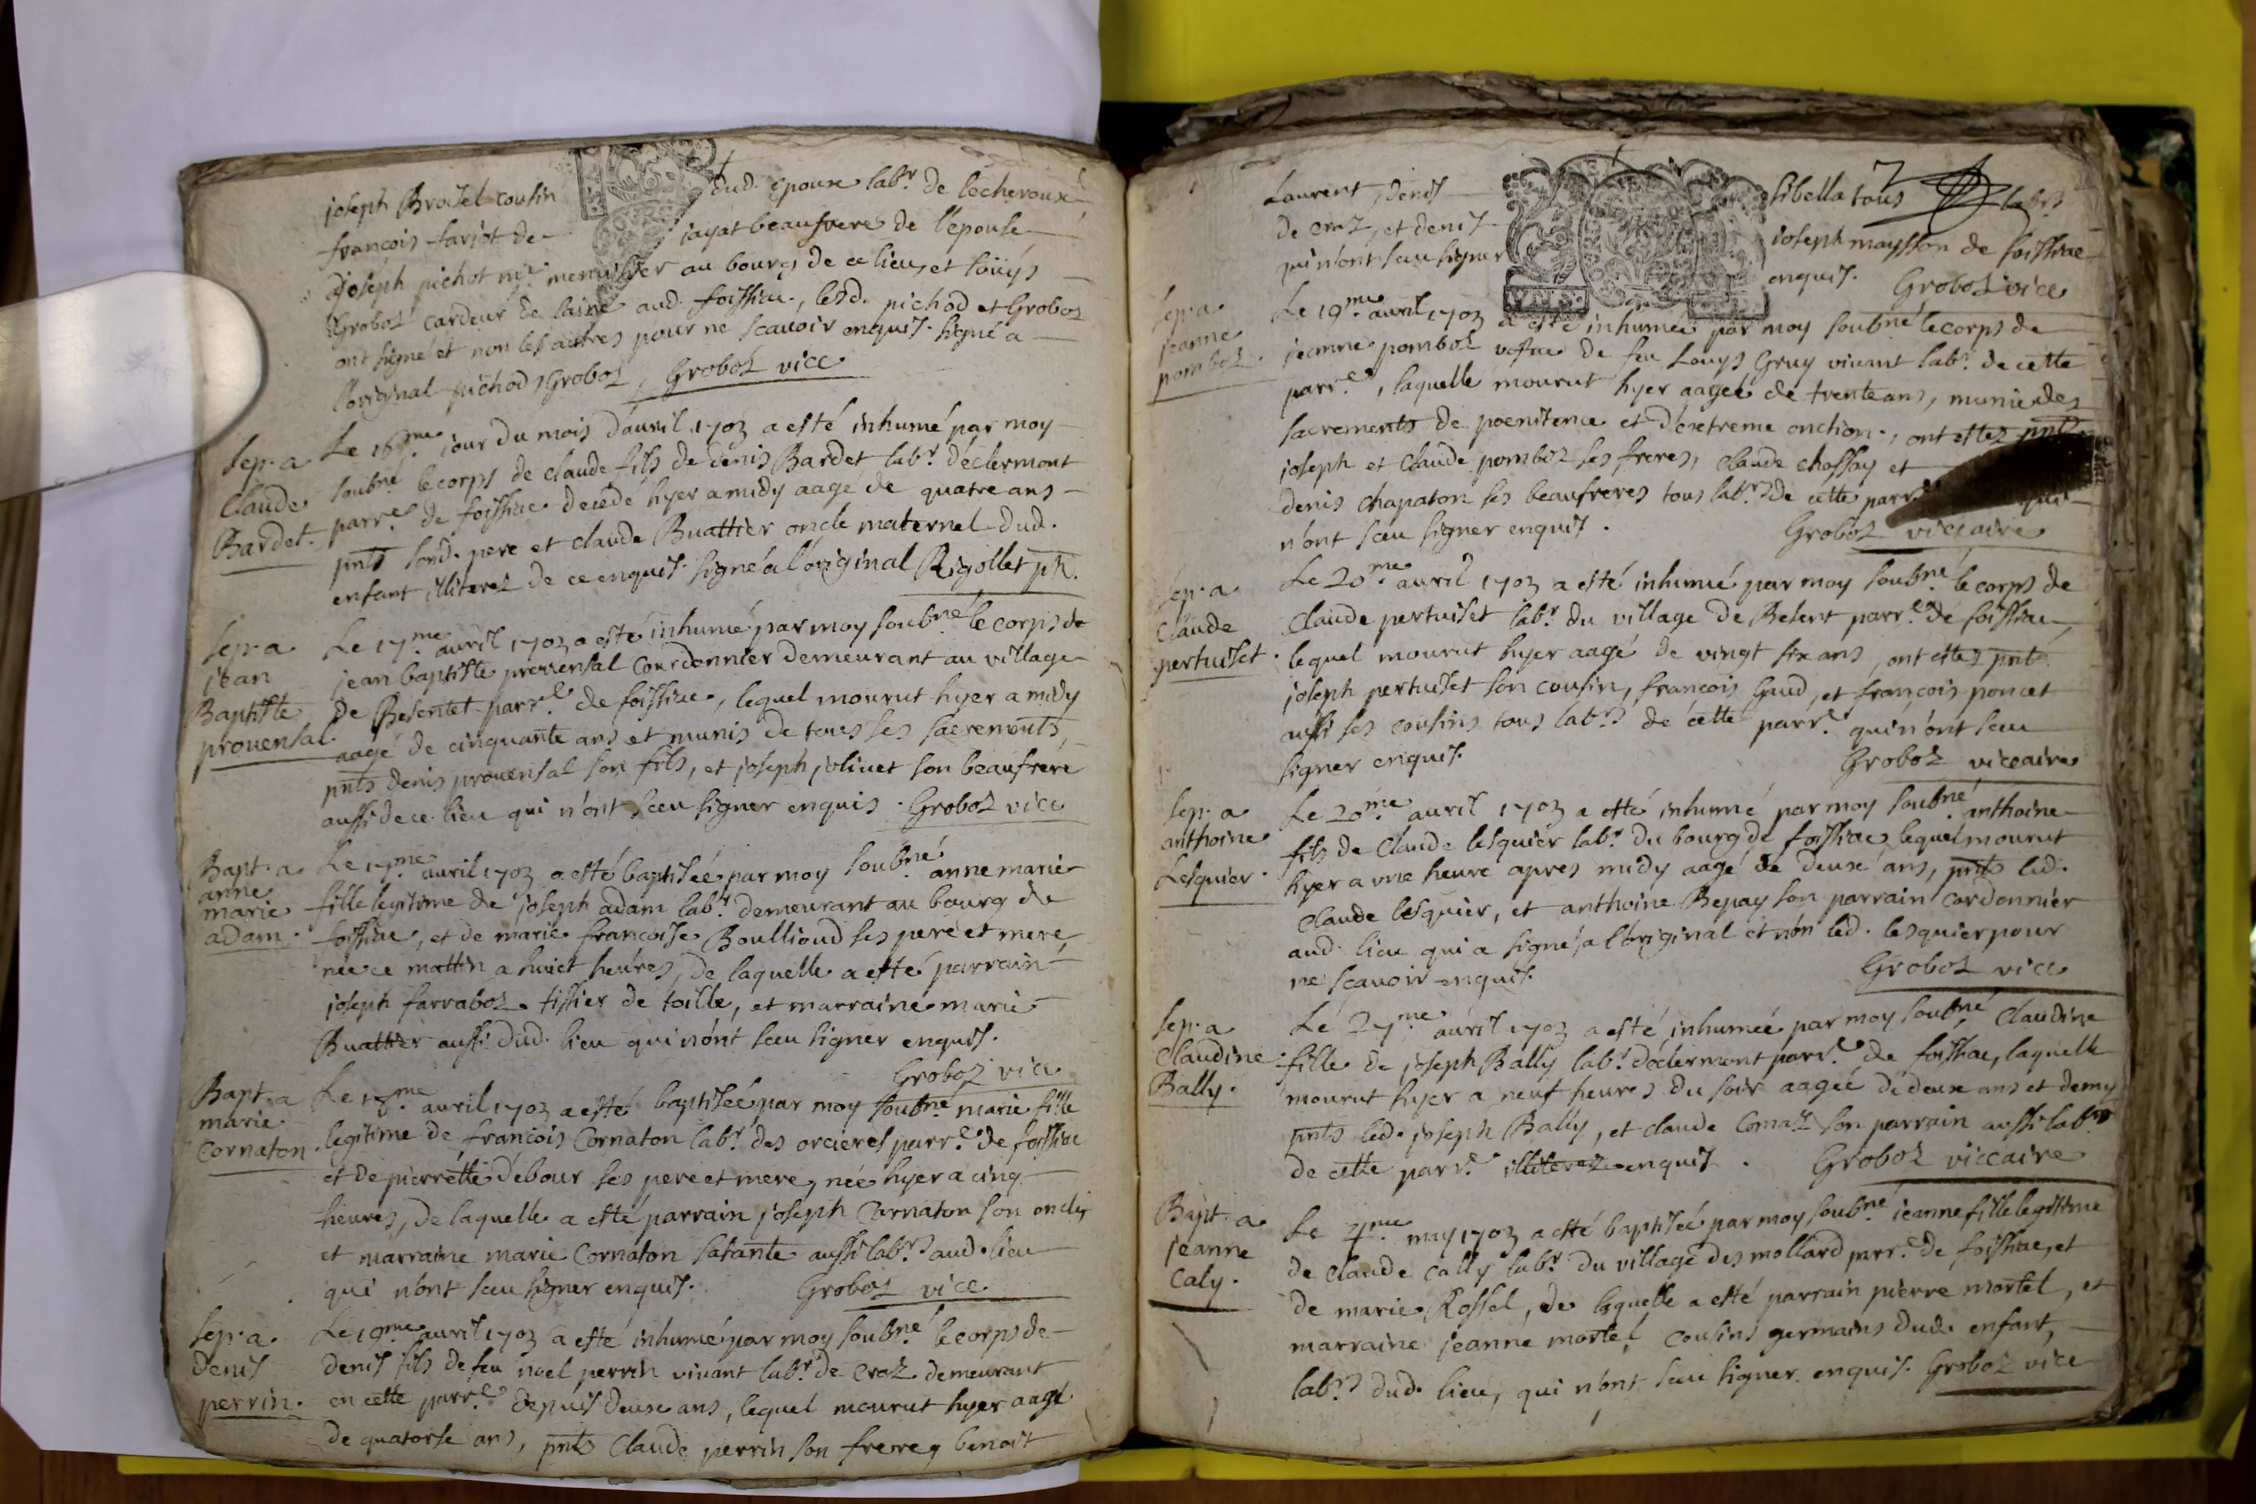 joseph Brosel cousin dud. epoux labr. de lecheroux
françois farjot de jayat beaufrere de l'epouse
joseph pichot mre. menuisier au bourg de ce lieu, et loüys
Groboz cardeur de laine aud. foissiac, lesd. pichod et Groboz
ont signé et non les autres pour ne scavoir enquis. signé a
l'original pichod, Groboz, Groboz vice
Sep.a Claude Bardet.
Le 16me. jour du mois d'avril 1703 a esté inhumé par moy
soubné le corps de claude fils de denis Bardet labr. declermont
parre. de foissiac decedé hyer a midy aagé de quatre ans
pnts sond. pere et claude Buattier oncle maternel dud.
enfant illiterez de ce enquis. signé a l'original Rigollet ptr.
Sep.a jean Baptiste provensal.
Le 17me. avril 1703 a esté inhumé par moy soubné le corps de
jean baptiste provensal Courdonnier demeurant au village
de Besentet parre. de foissiac, lequel mourut hyer a midy
aagé de cinquante ans et munis de tous les sacrements,
pnts denis provensal son fils, et joseph jolivet son beaufrere
aussi de ce lieu qui n'ont sceu signer enquis. Groboz vice
Bapt.a anne marie adam.
Le 17me. avril 1703 a esté baptisée par moy soubné. anne marie
fille legitime de joseph adam labr. demeurant au bourg de
foissiac, et de marie françoise Boullioud ses pere et mere
née ce mattin a huict heures, de laquelle a esté parrain
joseph farraboz tissier de toille, et marraine marie
Buattier aussi dud. lieu qui n'ont sceu signer enquis.
Groboz vice
Bapt.a marie Cornaton.
Le 18me. avril 1703 a esté baptisée par moy soubné marie fille
legitime de françois Cornaton labr. des orcieres parre. de foissiac
et de pierrette debour ses pere et mere, née hyer a cinq
heures, de laquelle a esté parrain joseph Cornaton son oncle,
et marraine marie Cornaton satante aussi labrs. aud. lieu
qui n'ont sceu signer enquis. Groboz vice
Sep.a denis perrin.
Le 19me. avril 1703 a esté inhumé par moy soubné le corps de
denis fils de feu noel perrin vivant labr. de Craz demeurant
en cette parre. depuis deux ans, lequel mourut hyer aagé
de quatorse ans, pnts Claude perrin son frere, benoit
Laurent, denis sibella tous labrs
de craz, et denis joseph maysson de foissiac
qui n'ont sceu signer enquis. Groboz vice
Sep.a jeanne pomboz.
Le 19me. avril 1703 a esté inhumée par moy soubné le corps de
jeanne pomboz vefve de feu Louys Gruy vivant labr. de cette
parre., laquelle mourut hyer aagée de trente ans, munie des
sacrements de poenitence et d'extreme onction, ont estez pnts
joseph et Claude pomboz ses freres, Claude chossay et
denis chapaton ses beaufreres tous labrs. de cette parre. qui
n'ont sceu signer enquis. Groboz viccaire
Sep.a Claude pertuiset.
Le 20me. avril 1703 a esté inhumé par moy soubné le corps de
Claude pertuiset labr. du village de Besent parre. de foissiac,
lequel mourut hyer aagé de vingt six ans, ont estez pnts
joseph pertuiset son cousin, françois Gaud, et françois poncet
aussi ses cousins tous labrs. de cette parre. qui n'ont sceu
signer enquis. Groboz viccaire
Sep.a anthoine Lesquier.
Le 20me. avril 1703 a esté inhumé par moy soubné. anthoine
fils de Claude lesquier labr. du bourg de foissiac, lequel mourut
hyer a une heure apres midy aagé de deux ans, pnts led.
Claude lesquier, et anthoine Repay son parrain Cordonnier
aud. lieu qui a signé a l'original et non led. lesquier pour
ne scavoir enquis. Groboz vice
Sep.a Claudine Bally.
Le 27me. avril 1703 a esté inhumée par moy soubné Claudine
fille de joseph Bally labr. declermont parre. de foissiac, laquelle
mourut hyer a neuf heures du soir aagée de deux ans et demy
pnts led. joseph Bally, et claude Comaz son parrain aussi labrs
de cette parre. illiterez enquis. Groboz viccaire
Bapt.a jeanne Caly.
Le 4me. may 1703 a esté baptisée par moy soubné. jeanne fille legittime
de claude cally labr. du village des mollard parre. de foissiac, et
de marie Rossel, de laquelle a esté parrain pierre mortel, et
marraine jeanne mortel, cousins germains dud. enfant,
labrs. dud. lieu, qui n'ont sceu signer enquis. Groboz vice